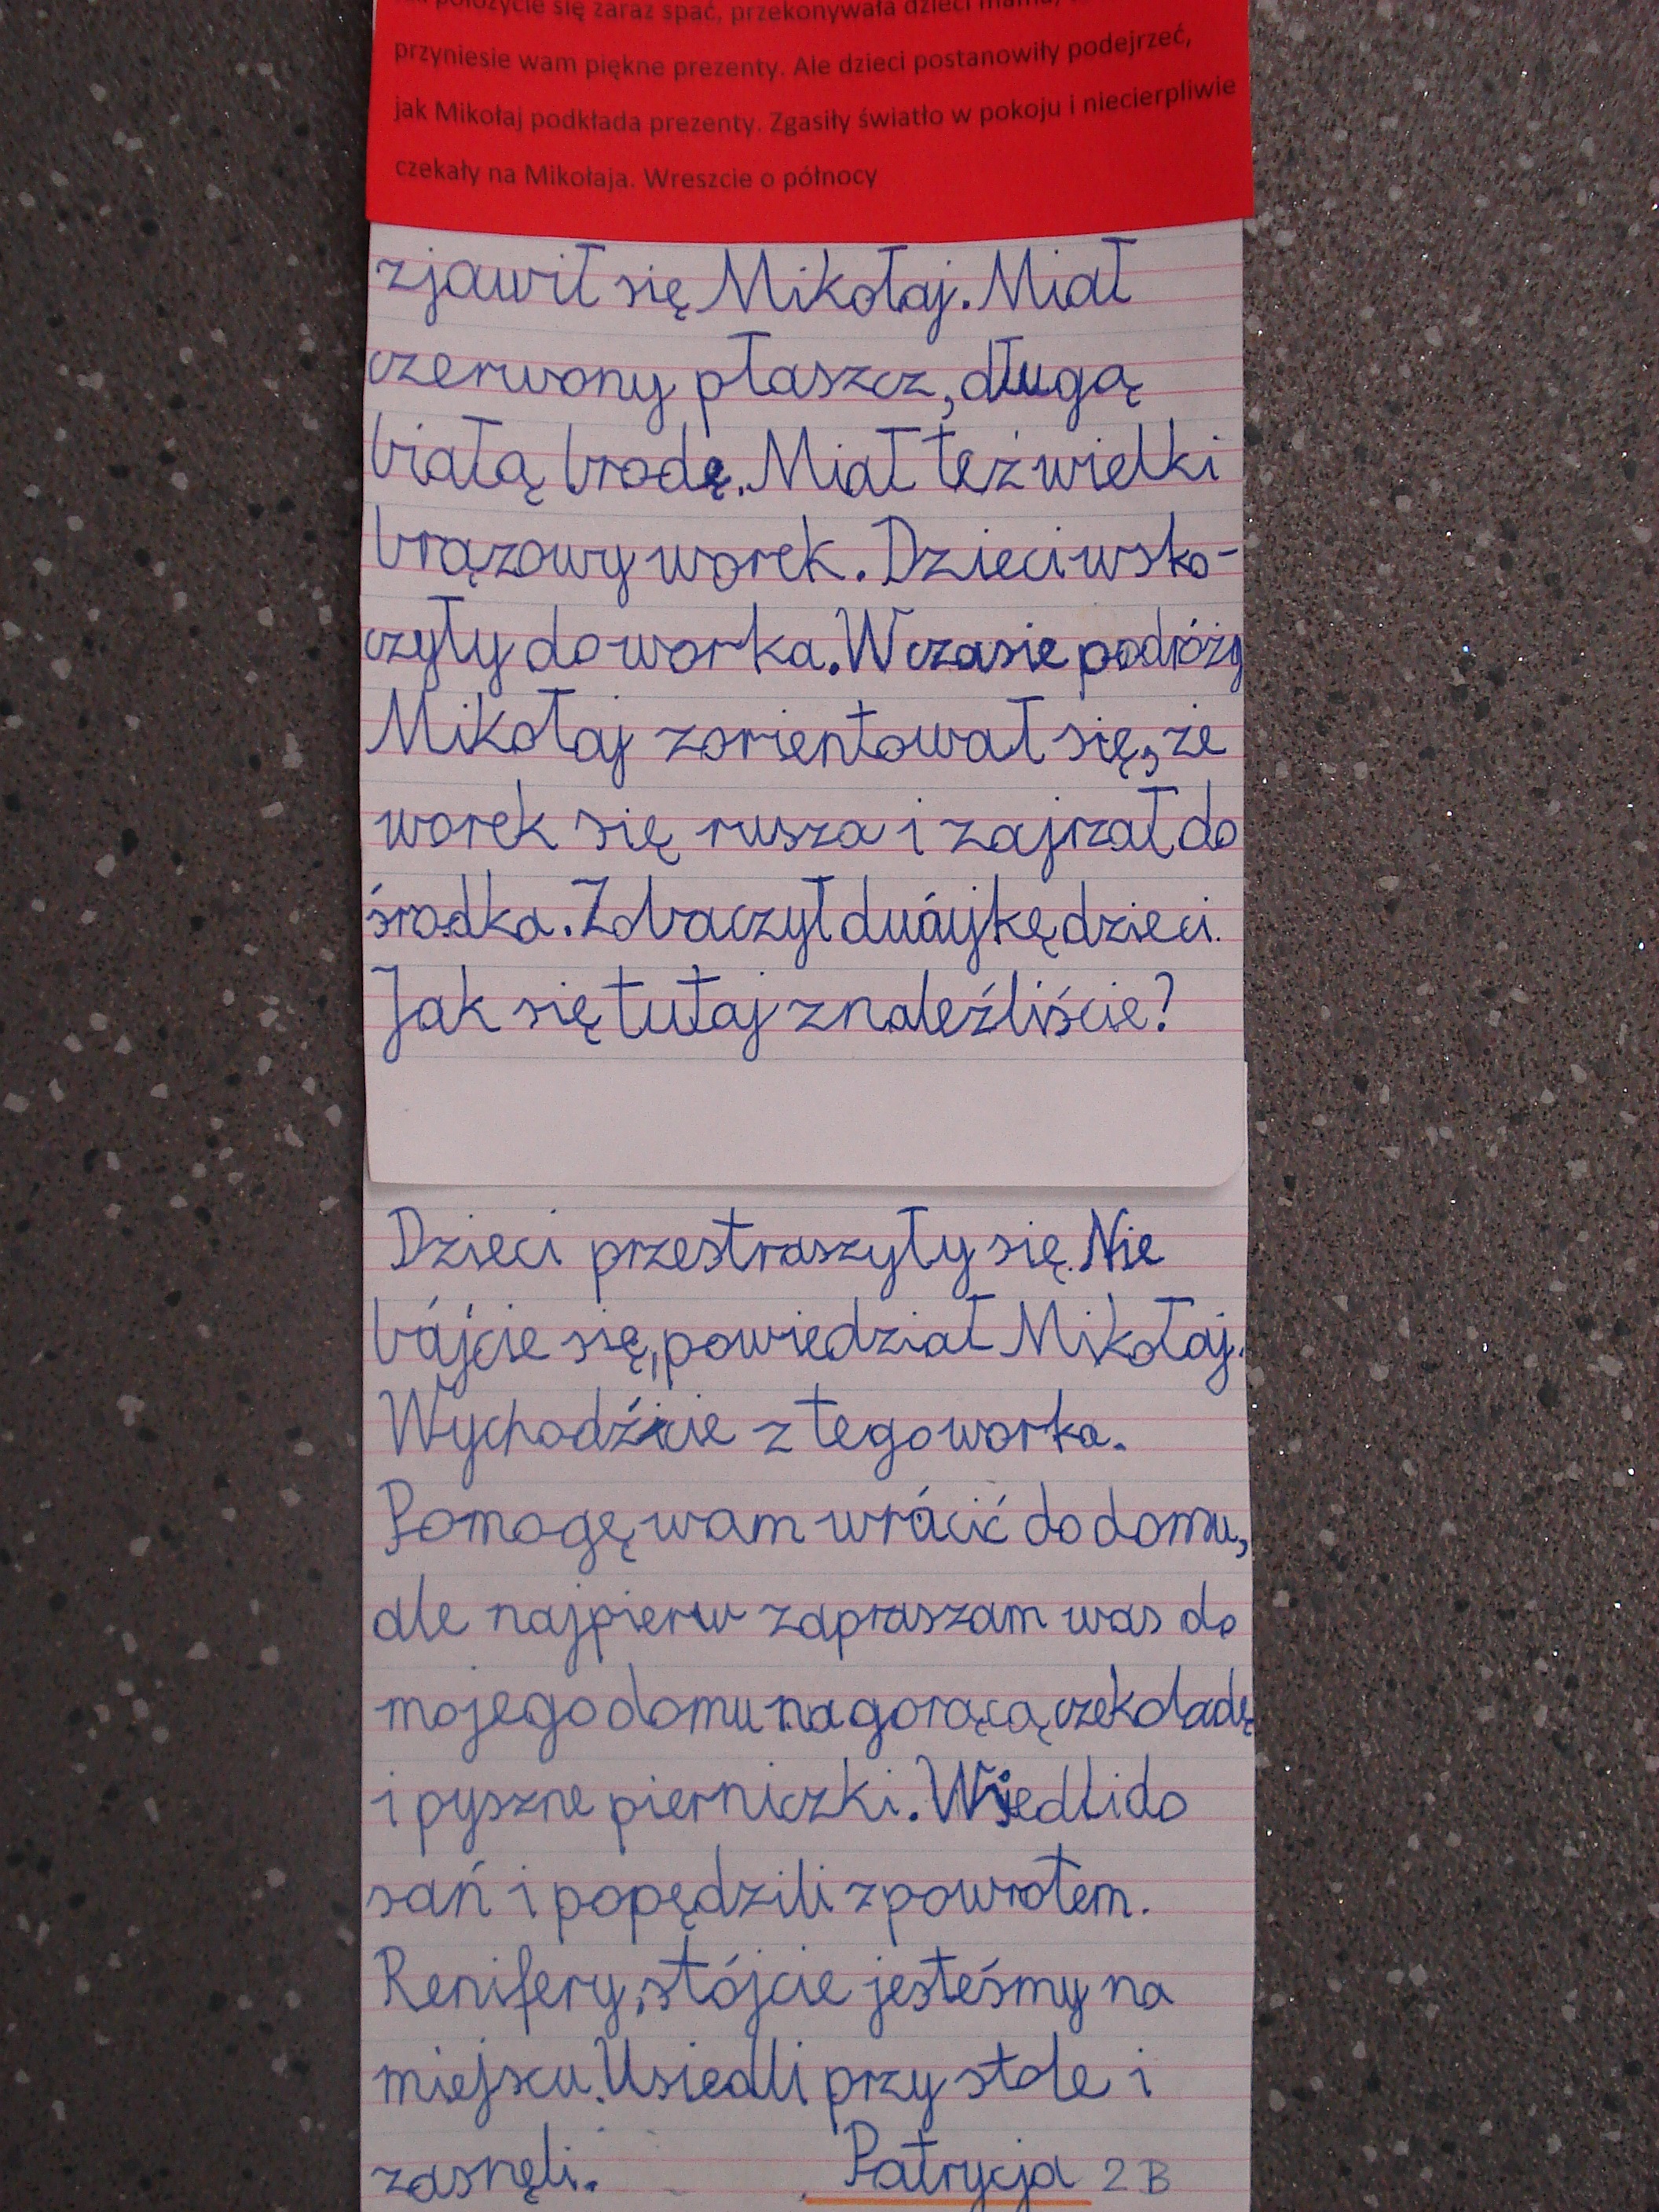 położycie się zaraz spać, przekonywała dzieci mama,
przyniesie wam piękne prezenty. Ale dzieci postanowiły podejrzeć,
jak Mikołaj podkłada prezenty. Zgasiły światło w pokoju i niecierpliwie
czekały na Mikołaja. Wreszcie o północy
zjawił się Mikołaj. Miał
czerwony płaszcz, długą
białą brodę. Miał też wielki
brązowy worek. Dzieci wsko-
czyły do worka. W czasie podróży
Mikołaj zorientował się, że
worek się rusza i zajrzał do
środka. Zobaczył dwójkę dzieci.
Jak się tutaj znaleźliście?
Dzieci przestraszyły się. Nie
bójcie się, powiedział Mikołaj.
Wychodźcie z tego worka.
Pomogę wam wrócić do domu,
ale najpierw zapraszam was do
mojego domu na gorącą czekoladę
i pyszne pierniczki. Wsiedli do
sań i popędzili z powrotem.
Renifery, stójcie jesteśmy na
miejscu. Usiedli przy stole i
zasnęli. Patrycja 2B